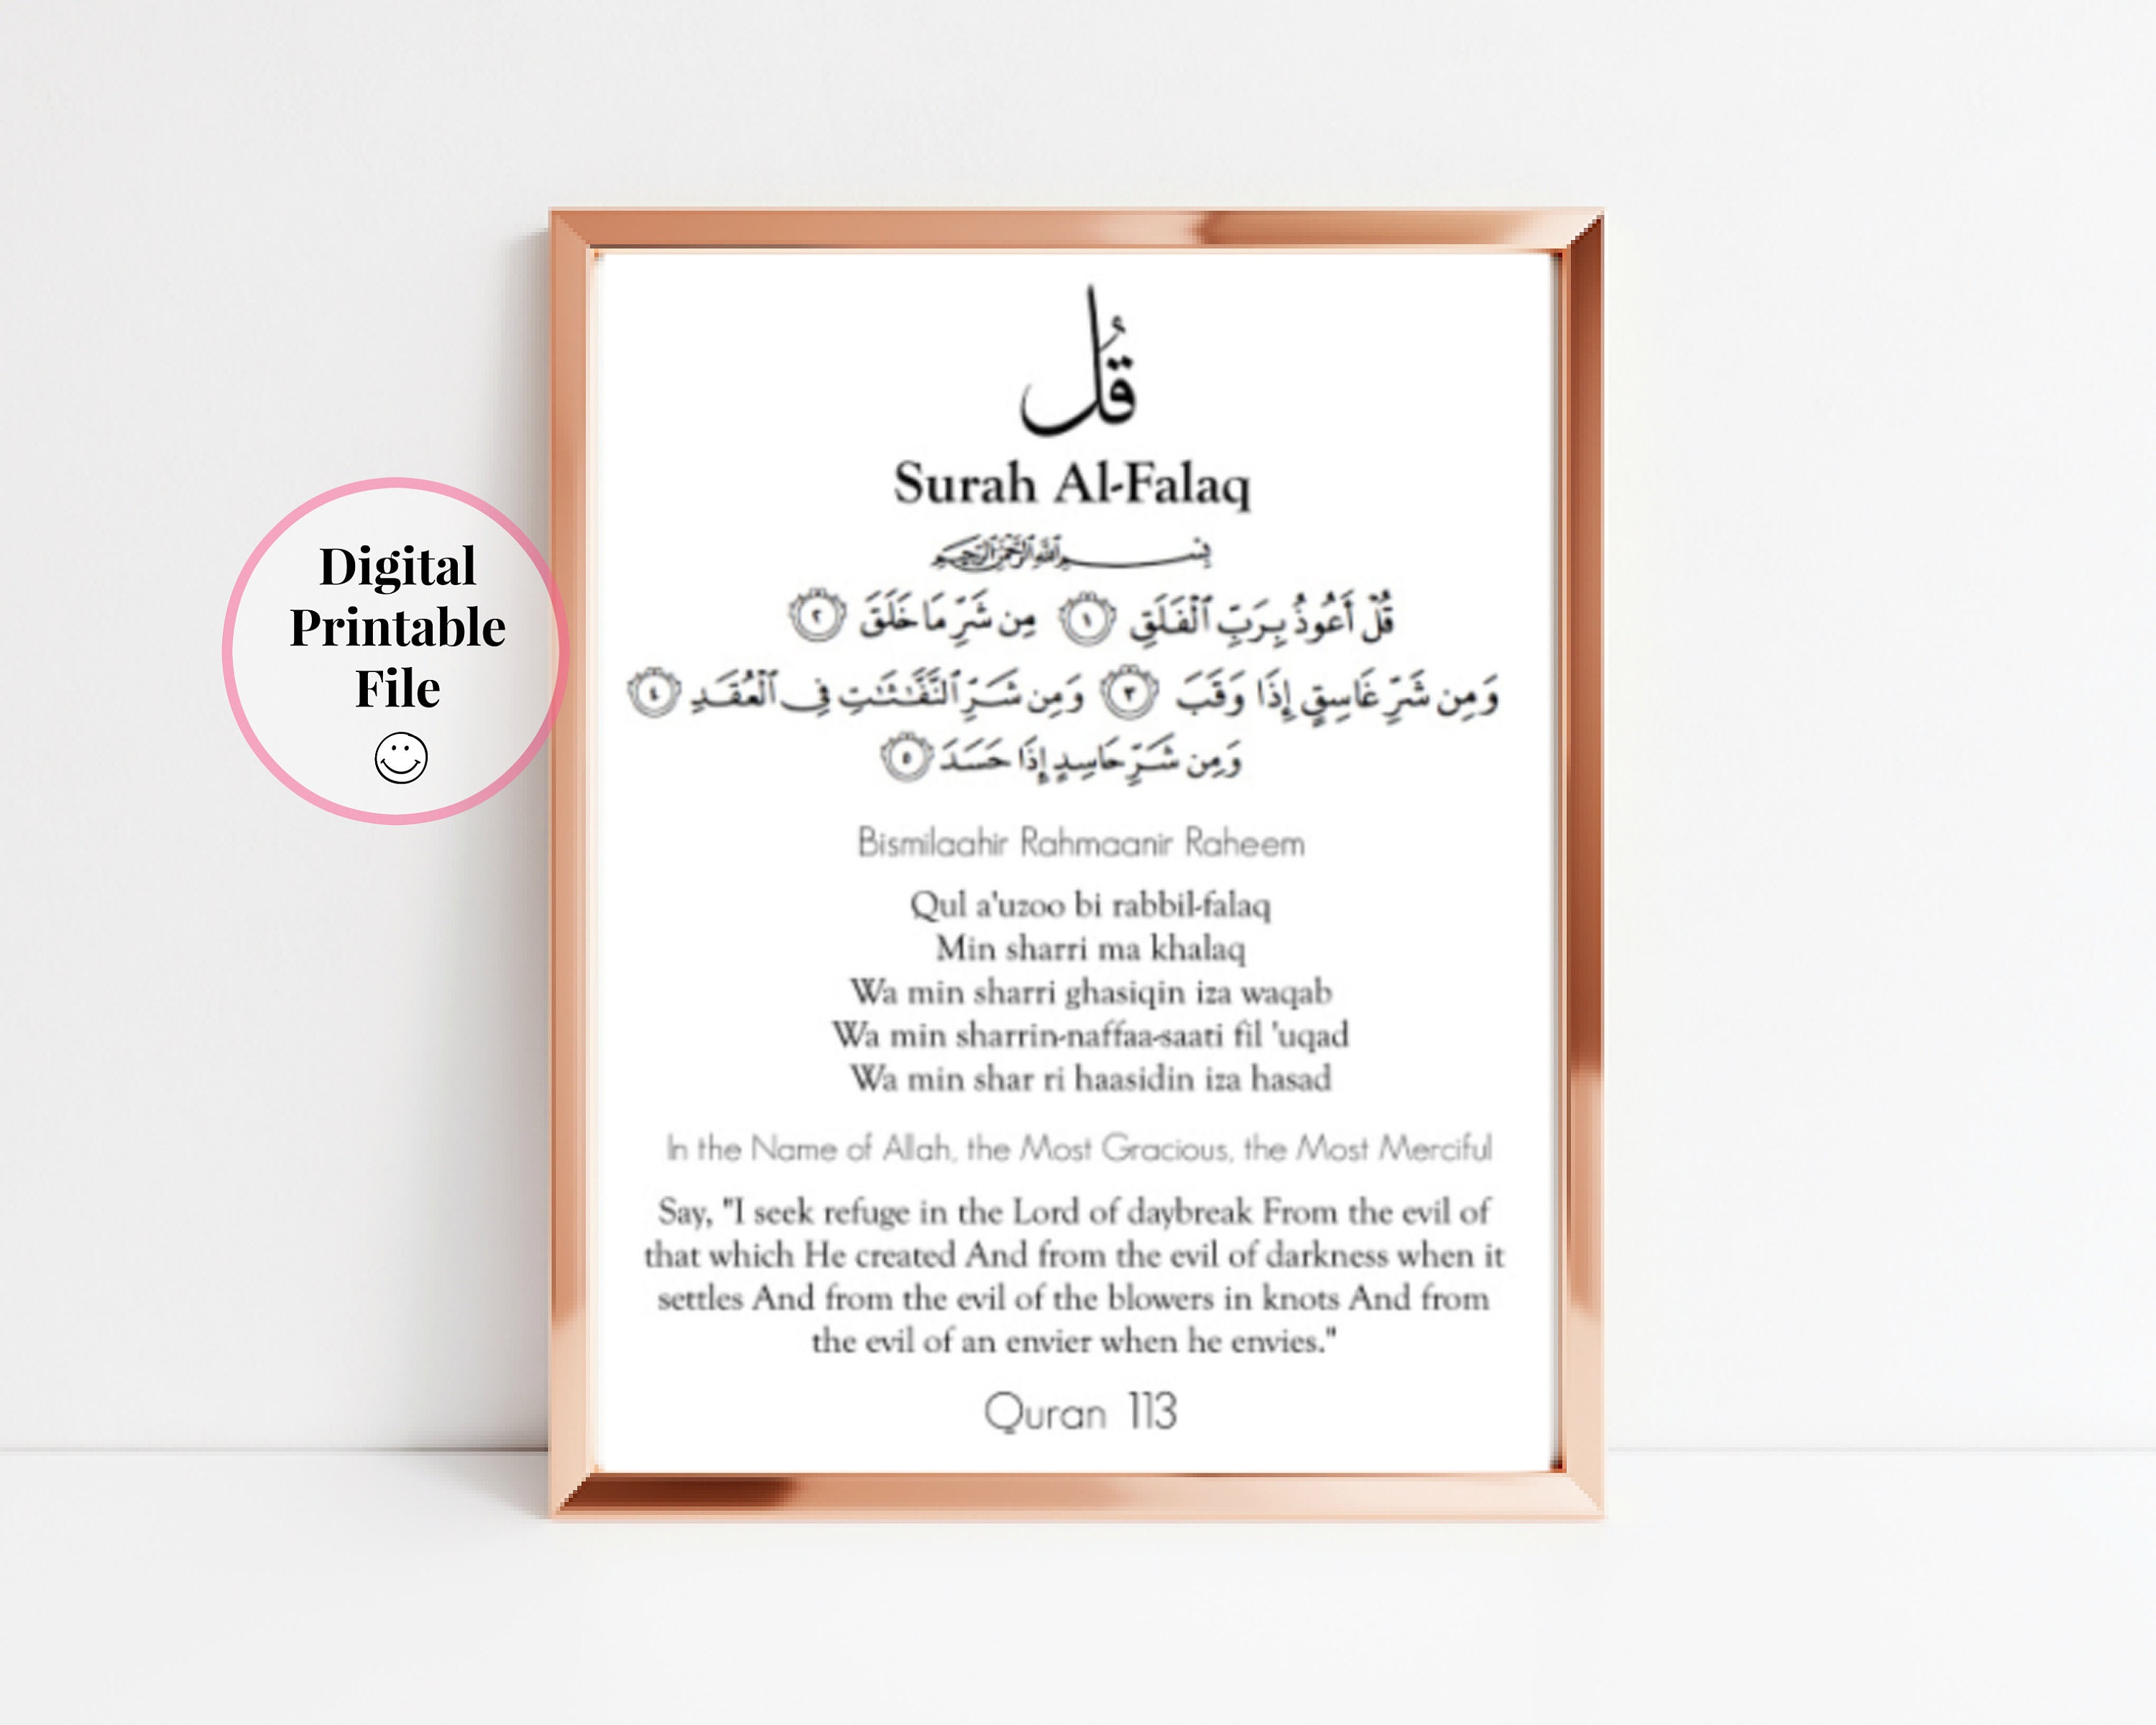 Digital
Printable
File
قُل
Surah Al-Falaq
بِسْمِ ٱللَّهِ ٱلرَّحْمَٰنِ ٱلرَّحِيمِ
قُلْ أَعُوذُ بِرَبِّ ٱلْفَلَقِ ١ مِن شَرِّ مَا خَلَقَ ٢
وَمِن شَرِّ غَاسِقٍ إِذَا وَقَبَ ٣ وَمِن شَرِّ ٱلنَّفَّٰثَٰتِ فِى ٱلْعُقَدِ ٤
وَمِن شَرِّ حَاسِدٍ إِذَا حَسَدَ ٥
Bismilaahir Rahmaanir Raheem
Qul a'uzoo bi rabbil-falaq
Min sharri ma khalaq
Wa min sharri ghasiqin iza waqab
Wa min sharrin-naffaa-saati fil 'uqad
Wa min shar ri haasidin iza hasad
In the Name of Allah, the Most Gracious, the Most Merciful
Say, "I seek refuge in the Lord of daybreak From the evil of
that which He created And from the evil of darkness when it
settles And from the evil of the blowers in knots And from
the evil of an envier when he envies."
Quran 113